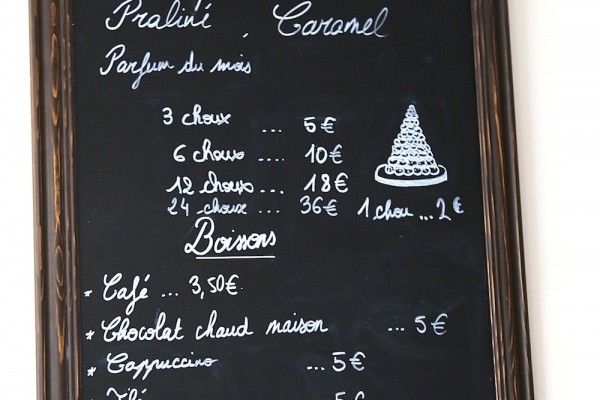 Praliné , Caramel
Parfum du mois
3 choux ... 5€
6 choux .... 10€
12 choux ... 18€
24 choux ... 36€ 1 chou ... 2€
Boissons
* Café ... 3,50€
* Chocolat chaud maison ... 5€
* Cappuccino ... 5€
* Thé ... 5€